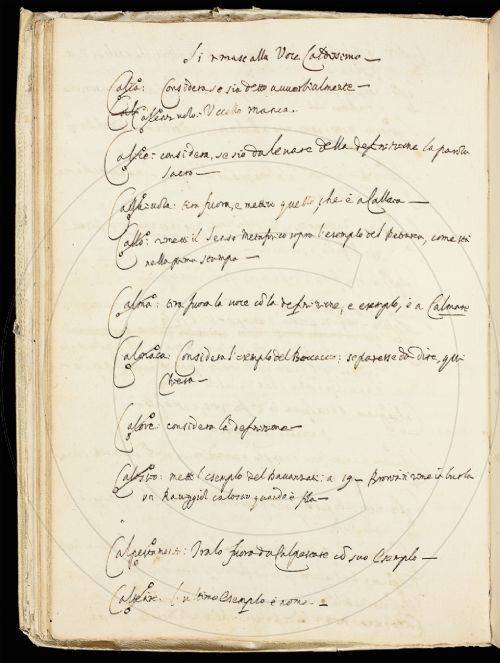 Si rimase alla Voce Caldissimo —
Calia: Considera se sia detto avverbialmente —
Calenzuolo: Uccello manca.
Calice: considera, se sia da levare dalla definizione la parola
sacro —
tira fuora, e metti quello, che è a Callaia —
Callo: rimetti il senso metaforico sopra l'esempio del Petrarca, come stà
nella prima stampa —
Calma: tira fuora la voce cò la definizione, e esempio, è a Calmare
Calonaca: Considera l'esempio del Boccaccio: se paresse da dire, qui
Chiesa —
Calore: considera la definizione —
metti l'esempio del Davanzati: a 19 — in burla
un caloroso quando è
Calpestamento: Tralo fuora da Calpestare cò suo Esempio —
l'ultimo Esempio è nome. —